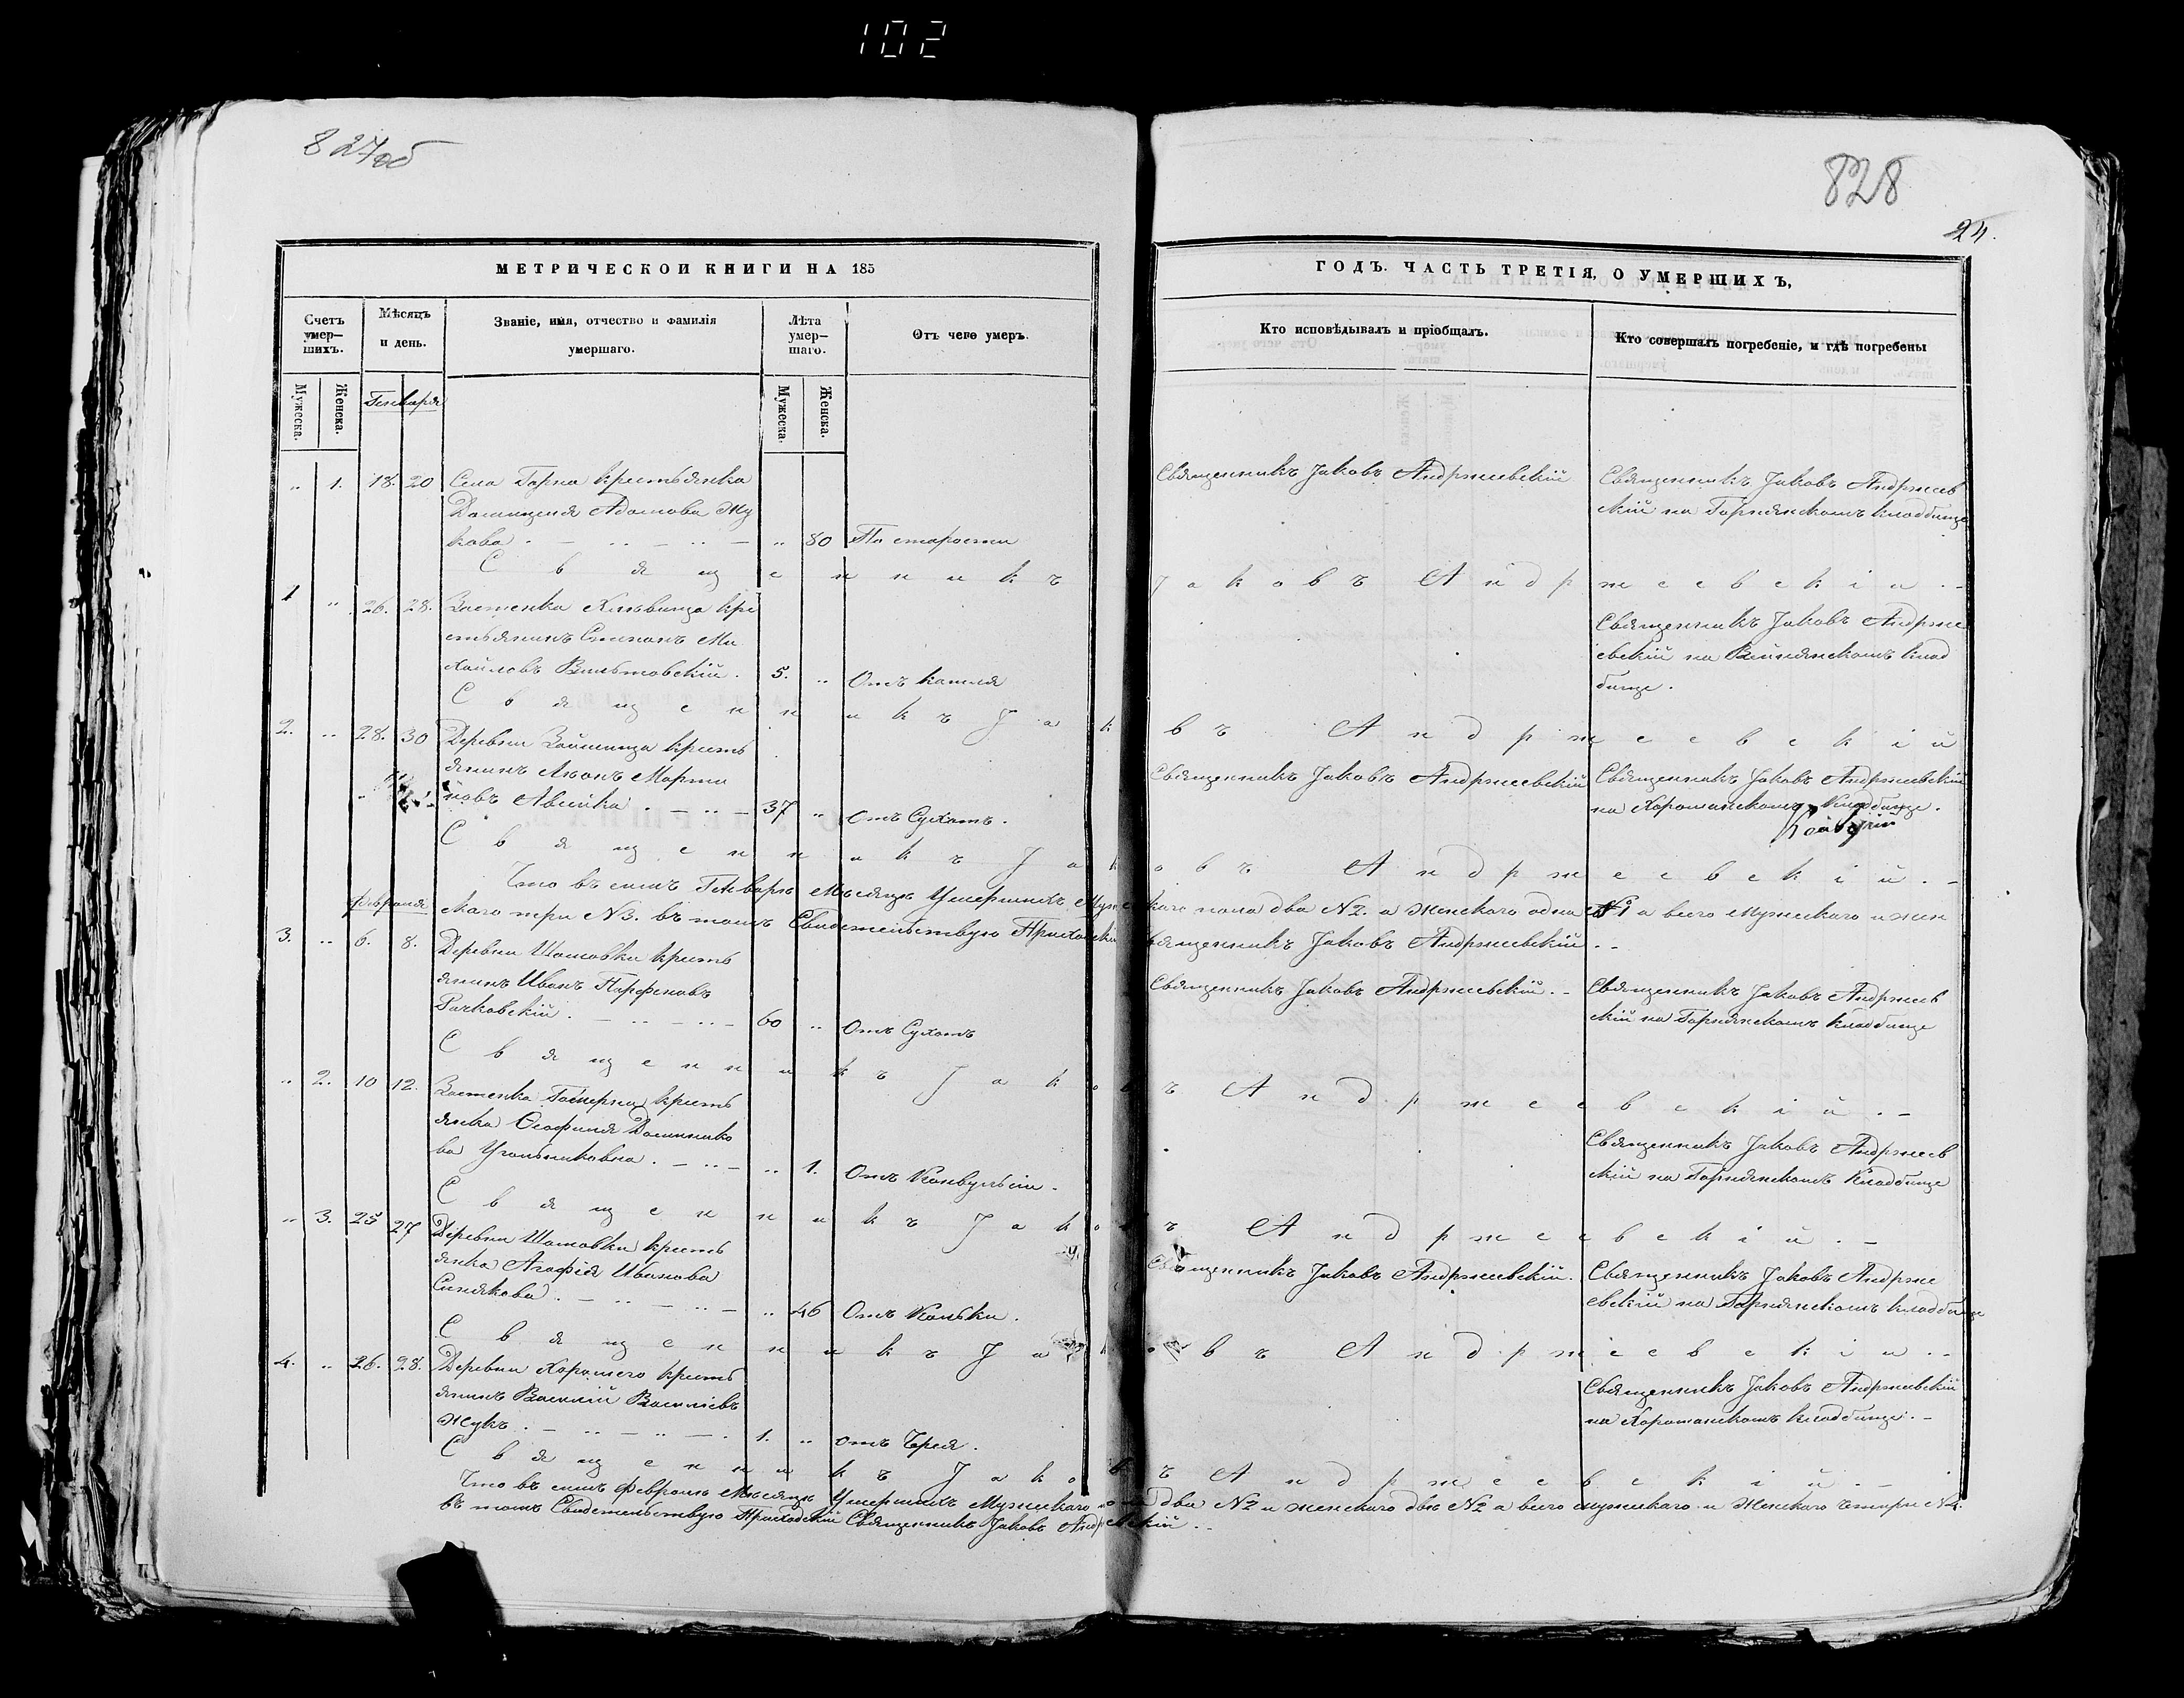 102
827об
828
24.
МЕТРИЧЕСКОЙ КНИГИ НА 185
ГОДЪ. ЧАСТЬ ТРЕТІЯ, О УМЕРШИХЪ,
Счетъ умер-шихъ.
Мѣсяцъ и день.
Званіе, имя, отчество и фамилія умершаго.
Лѣта умер-шаго.
Отъ чего умеръ.
Кто исповѣдывалъ и пріобщалъ.
Кто совершалъ погребеніе, и гдѣ погребены
Мужеска.
Женска.
Мужеска.
Женска.
Генваря
„ 1. 18. 20 Села Горна крестьянка
Домицеля Адамова Жу
кова . — .. — .. — „ 80 По старости
Священникъ Јаковъ Андржеевскій
Священникъ Јаковъ Андржеев
скій на Горнянскомъ кладбище
Священникъ Јаковъ Андржеевскій . -
1 „ 26. 28. Застенка кре
стьянинъ Степанъ Ми
хайловъ Вильтовскій . 5. „ Отъ кашля
Священникъ Јаковъ Андрже
евскій на клад
бище .
Священникъ Јаковъ Андржеевскій
2. „ 28. 30 Деревни кресть
янинъ Марти
новъ . — .. — 37 „ Отъ Сухотъ .
Священникъ Јаковъ Андржеевскій
Священникъ Јаковъ Андржеевскій
на Хорошанскомъ Кладбище .
Священникъ Јаковъ Андржеевскій . -
Что въ семъ Генваре Месяце Умершихъ Мужескаго пола два №2. а Женскаго одна №1 а всего Мужескаго и жен
скаго три №3. въ томъ Свидетельствую Приходскій Священникъ Јаковъ Андржеевскій . -
Февраля
3. „ 6. 8. Деревни Шамовки кресть
янинъ Иванъ Парфеновъ
Рачковскій . — .. — .. — 60 „ Отъ Сухотъ
Священникъ Јаковъ Андржеевскій . -
Священникъ Јаковъ Андржеев
скій на Горнянскомъ Кладбище
Священникъ Јаковъ Андржеевскій . -
„ 2. 10 12. Застенка кресть
янка Доминико
ва Угольниковна . — .. — „ 1. Отъ Конвульсіи .
Священникъ Јаковъ Андржеев
скій на Горнянскомъ Кладбище
Священникъ Јаковъ Андржеевскій . -
„ 3. 25 27 Деревни Шамовки кресть
янка Агафія Иванова
Синякова . — .. — .. — „ 46 Отъ Кольки .
Священникъ Јаковъ Андржеевскій .
Священникъ Јаковъ Андрже
евскій на Горнянскомъ кладбище
Священникъ Јаковъ Андржеевскій . -
4. „ 26. 28. Деревни Хорошего кресть
янинъ Василій Васильевъ
Жукъ . — .. — .. — . 1. „ отъ .
Священникъ Јаковъ Андржеевскій
на Хорошанскомъ кладбище . -
Священникъ Јаковъ Андржеевскій . -
Что въ семъ Феврале Месяце Умершихъ Мужескаго пола два №2 и женскаго две №2 а всего мужескаго и Женскаго четыри №4.
въ томъ Свидетельствую Приходскій Священникъ Јаковъ Андржеевскій . -